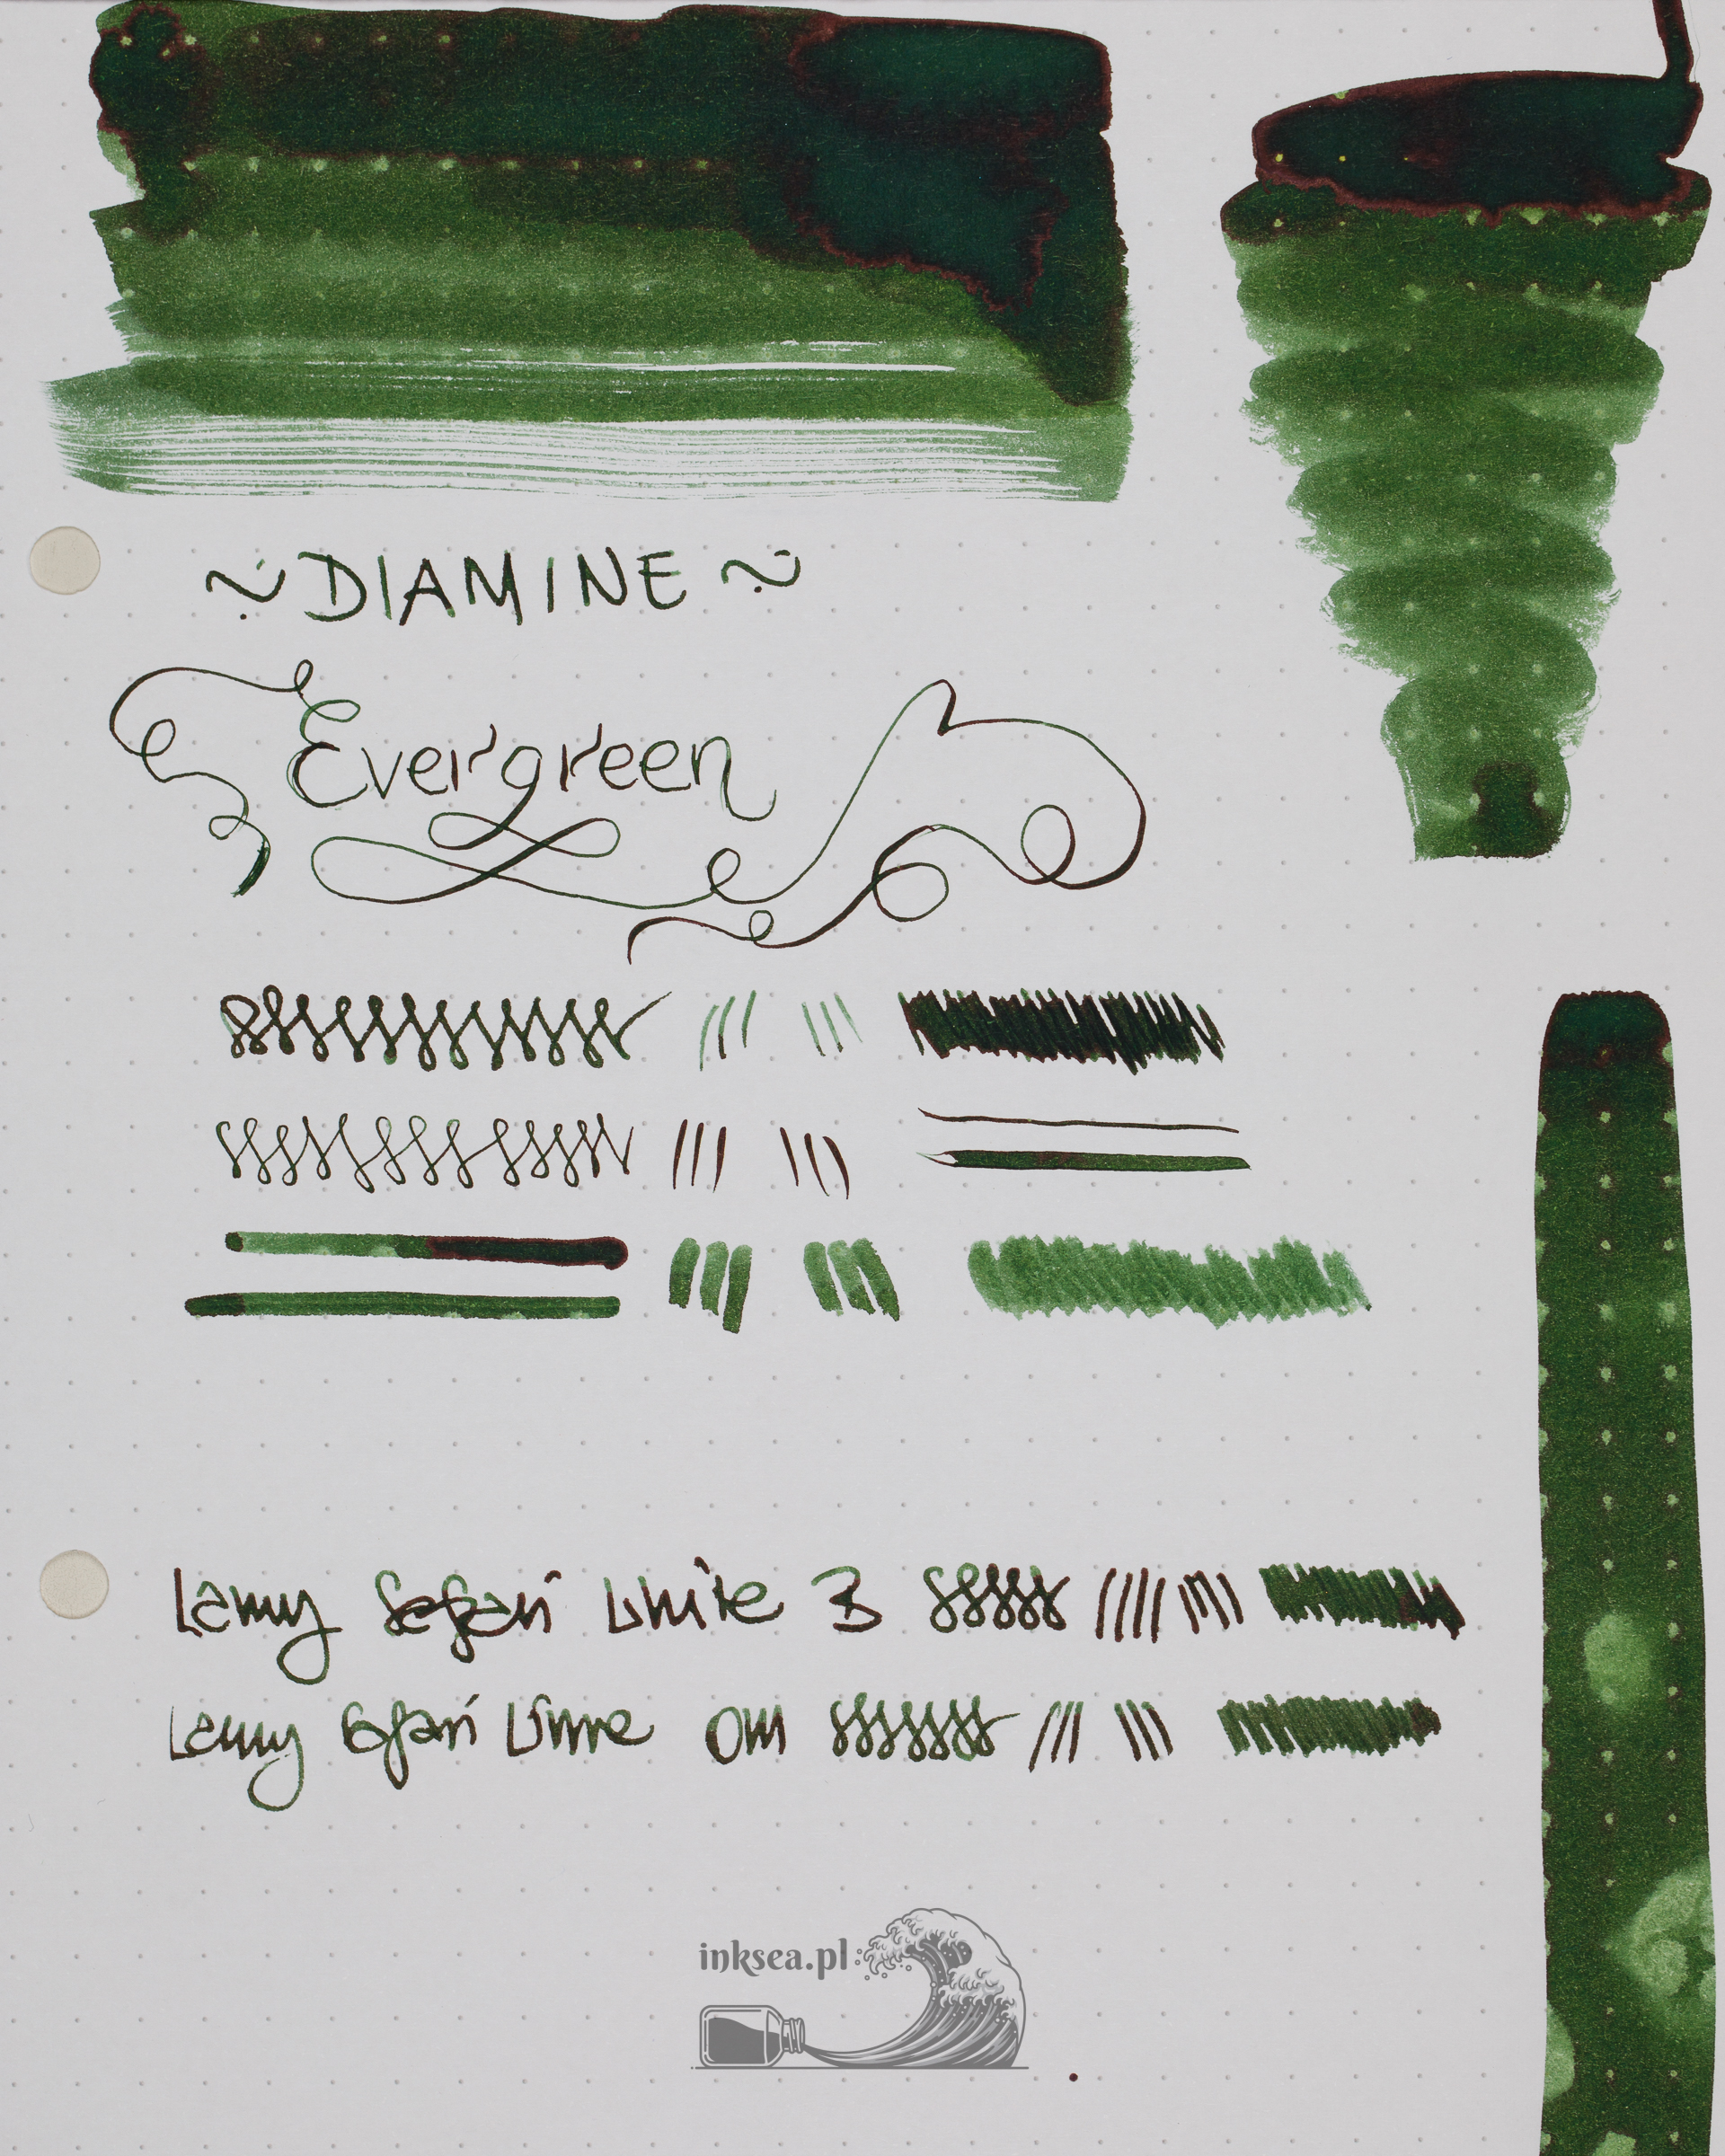 ~ DIAMINE ~
Evergreen
Lamy Safari White B
Lamy Safari Vinne OM
inksea.pl